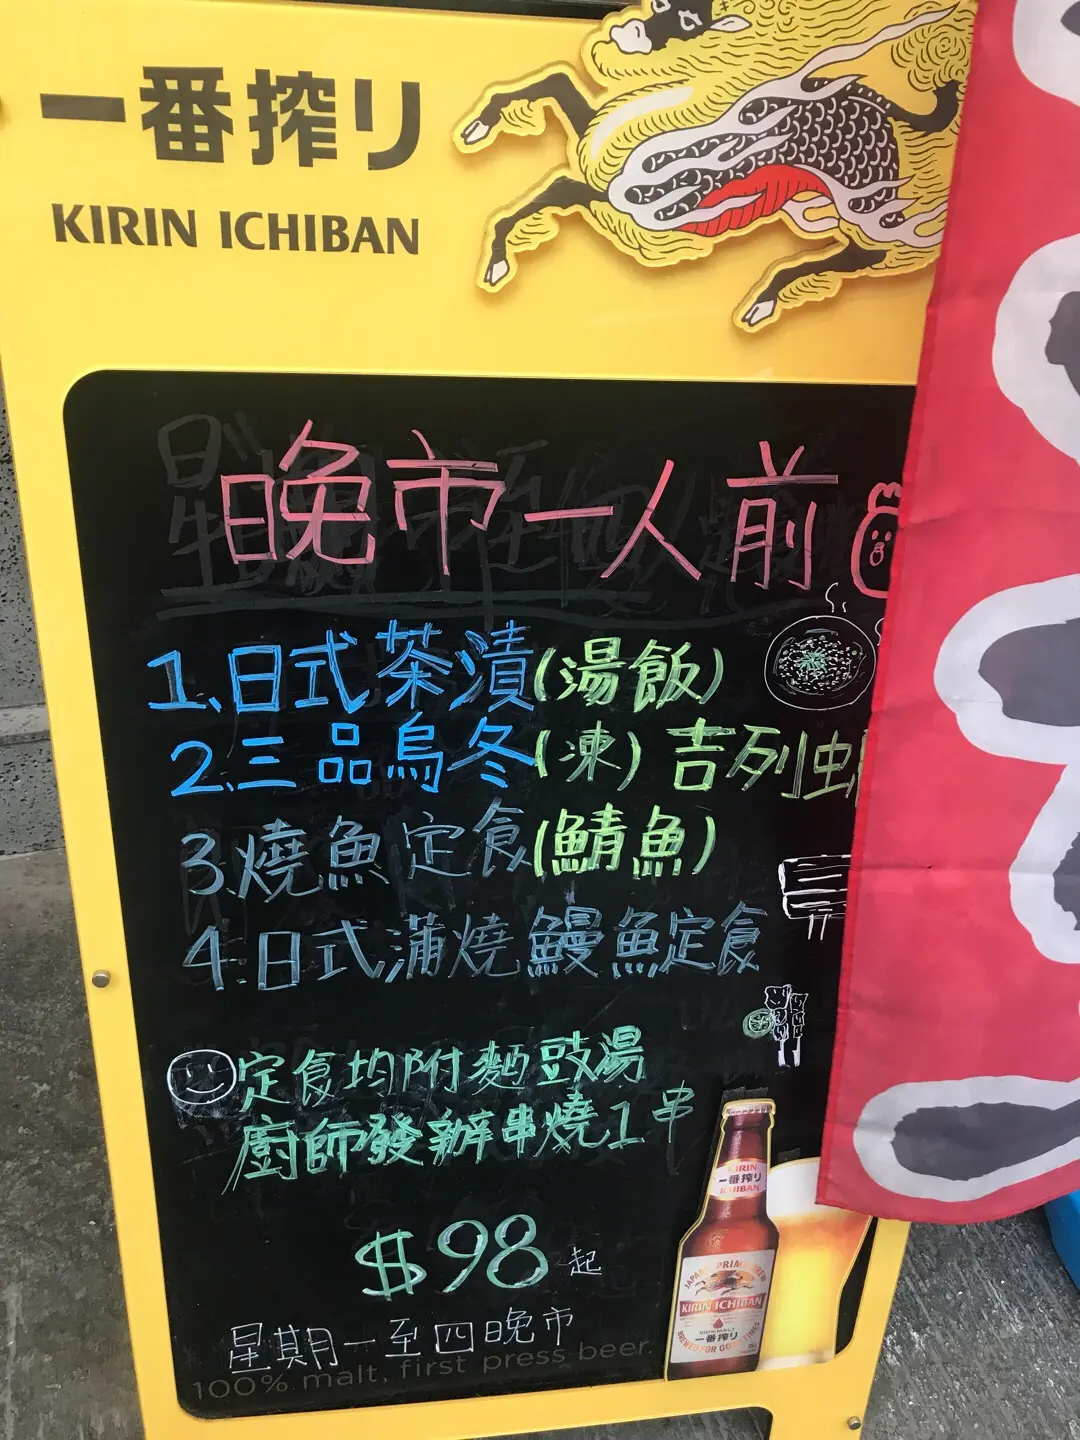 一番搾り
KIRIN ICHIBAN
晚市一人前
1.日式茶漬(湯飯)
2.三品烏冬(凍)吉列
3.燒魚定食(鯖魚)
4.日式蒲燒鰻魚定食
定食均附麵豉湯
廚師發辦串燒1串
$98起
星期一至四晚市
100% malt, first press beer.
KIRIN
一番搾り
ICHIBAN
KIRIN ICHIBAN
一番搾り